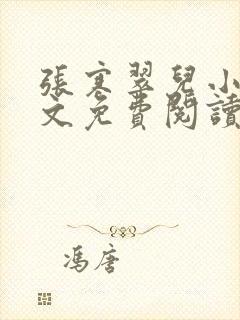 張寒翠兒小
文免費閱讀
馮唐